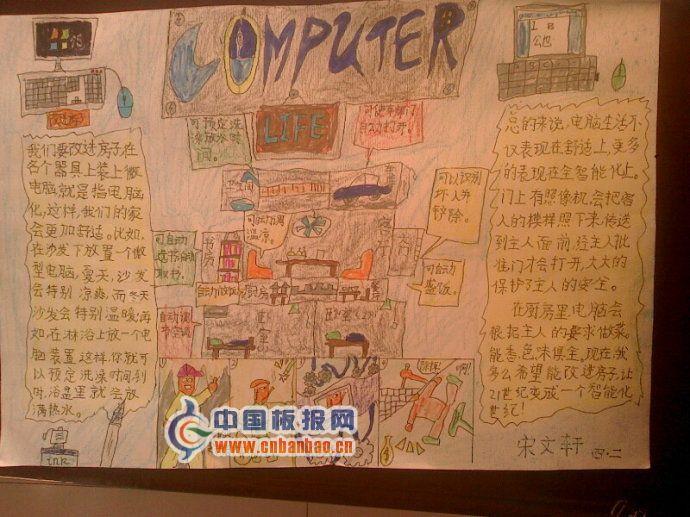 COMPUTER
LIFE
改过房子
我们要改过房子,在
各个器具上装上微
电脑,就是指电脑
化,这样,我们的家
会更加舒适。比如,
在沙发下放置一个微
型电脑,夏天,沙发
会特别凉爽,而冬天
沙发会特别温暖;再
如,在淋浴上放一个电
脑装置,这样,你就可
以预定洗澡时间,到
时,浴盆里就会放
满热水。
ink
可预定洗
澡放水时
间。
自动打开。
可以识别
坏人并
铲除。
可自动
取书。
书房
温凉。
客厅
大门
自动做饭
厨房
可自动
盛饭。
卧室
卧室
总的来说,电脑生活不
仅表现在舒适上,更多
的表现在全智能化上。
门上有照像机,会把客
人的模样照下来,传送
到主人面前,经主人批
准门才会打开,大大的
保护了主人的安全。
在厨房里电脑会
根据主人的要求做菜。
能香、色、味俱全,现在,我
多么希望能改进房子,让
21世纪变成一个智能化
世纪!
宋文轩 四·二
中国板报网
www.cnbanbao.cn